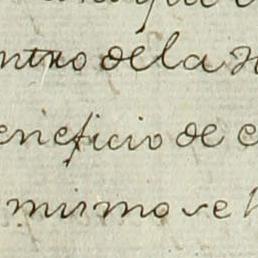 ntro de la
eneficio de
mismo se